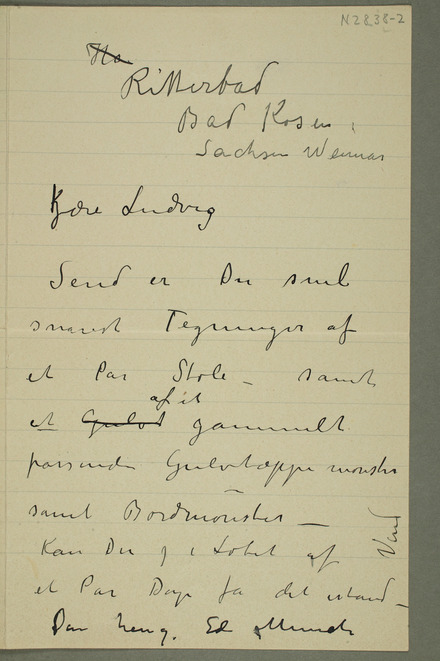 N 2838-2
Ha
Ritterbad
Bad Kosen,
Sachsen Weimar
Kjære Ludvig
Send er Du snil
snarest Tegninger af
et Par Stole – samt
af et
et Gulvt gammelt
passende Gulvtæppemønster
samt Bordmønster –
Kan Du i Løbet af
et Par Dage få det istand –
Din heng. Ed Munch